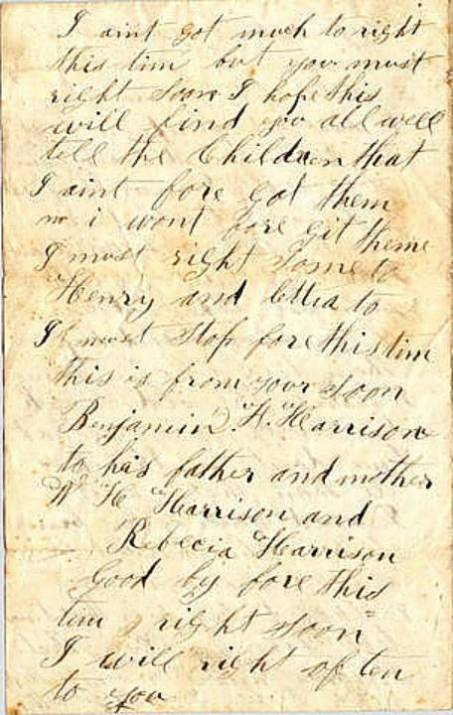 I aint got much to right
this tim but you must
right soon I hope this
will find you all well
tell the Children that
I aint fore got them
i wont fore git theme
I must right some to
Henry and to
I must stop fore this tim
this is from your soon
Benjamin H. Harrison
to his father and mother
W H Harrison and
Rebecia Harrison
Good by fore this
tim right soon
I will right often
to you